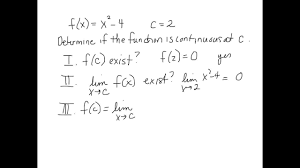 f(x) = x² - 4 c = 2
Determine if the function is continuous at c.
I. f(c) exist? f(2) = 0 yes
II. lim x→c f(x) exist? lim x→2 x² - 4 = 0
III. f(c) = lim x→c